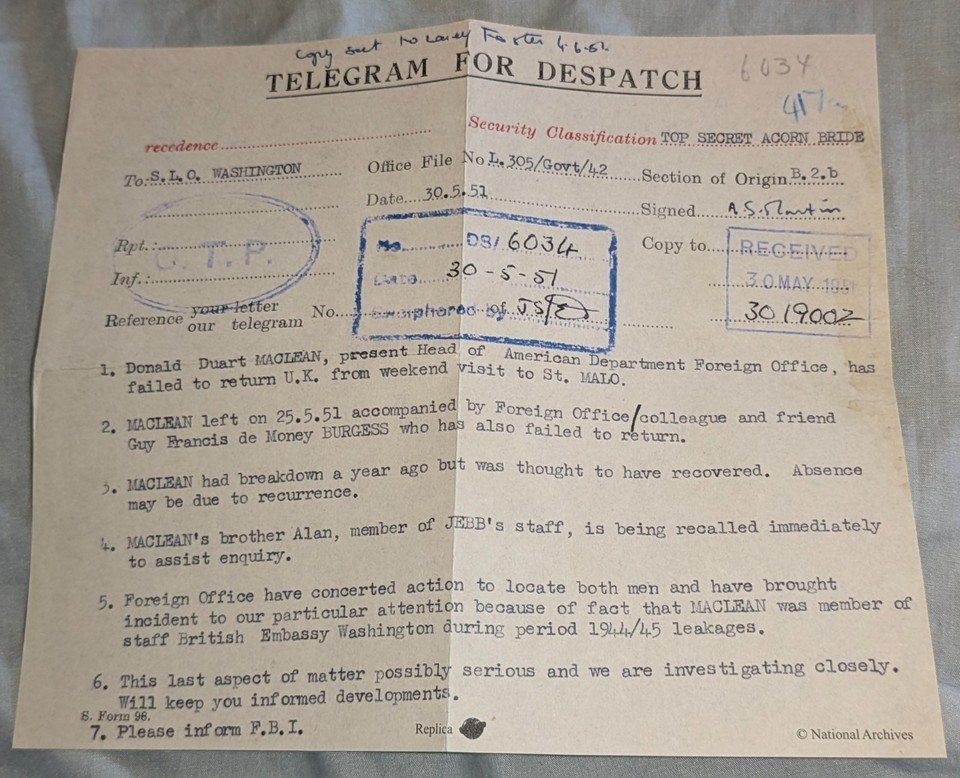 Copy sent to Carey Foster 4.6.51.
TELEGRAM FOR DESPATCH
6034
recedence
Security Classification TOP SECRET ACORN BRIDE
To: S.L.O. WASHINGTON
Office File No L.305/Govt/42
Section of Origin B.2.b
Date 30.5.51
Signed A.S. Martin
Rpt.:
U.T.P.
No. DS/6034
Copy to
RECEIVED
Inf.:
Date 30-5-51
30 MAY 1951
Reference your letter
our telegram No.
phered by JS
301900Z
1. Donald Duart MACLEAN, present Head of American Department Foreign Office, has
failed to return U.K. from weekend visit to St. MALO.
2. MACLEAN left on 25.5.51 accompanied by Foreign Office/colleague and friend
Guy Francis de Money BURGESS who has also failed to return.
3. MACLEAN had breakdown a year ago but was thought to have recovered. Absence
may be due to recurrence.
4. MACLEAN'S brother Alan, member of JEBB's staff, is being recalled immediately
to assist enquiry.
5. Foreign Office have concerted action to locate both men and have brought
incident to our particular attention because of fact that MACLEAN was member of
staff British Embassy Washington during period 1944/45 leakages.
6. This last aspect of matter possibly serious and we are investigating closely.
Will keep you informed developments.
S. Form 98.
7. Please inform F.B.I.
Replica
© National Archives